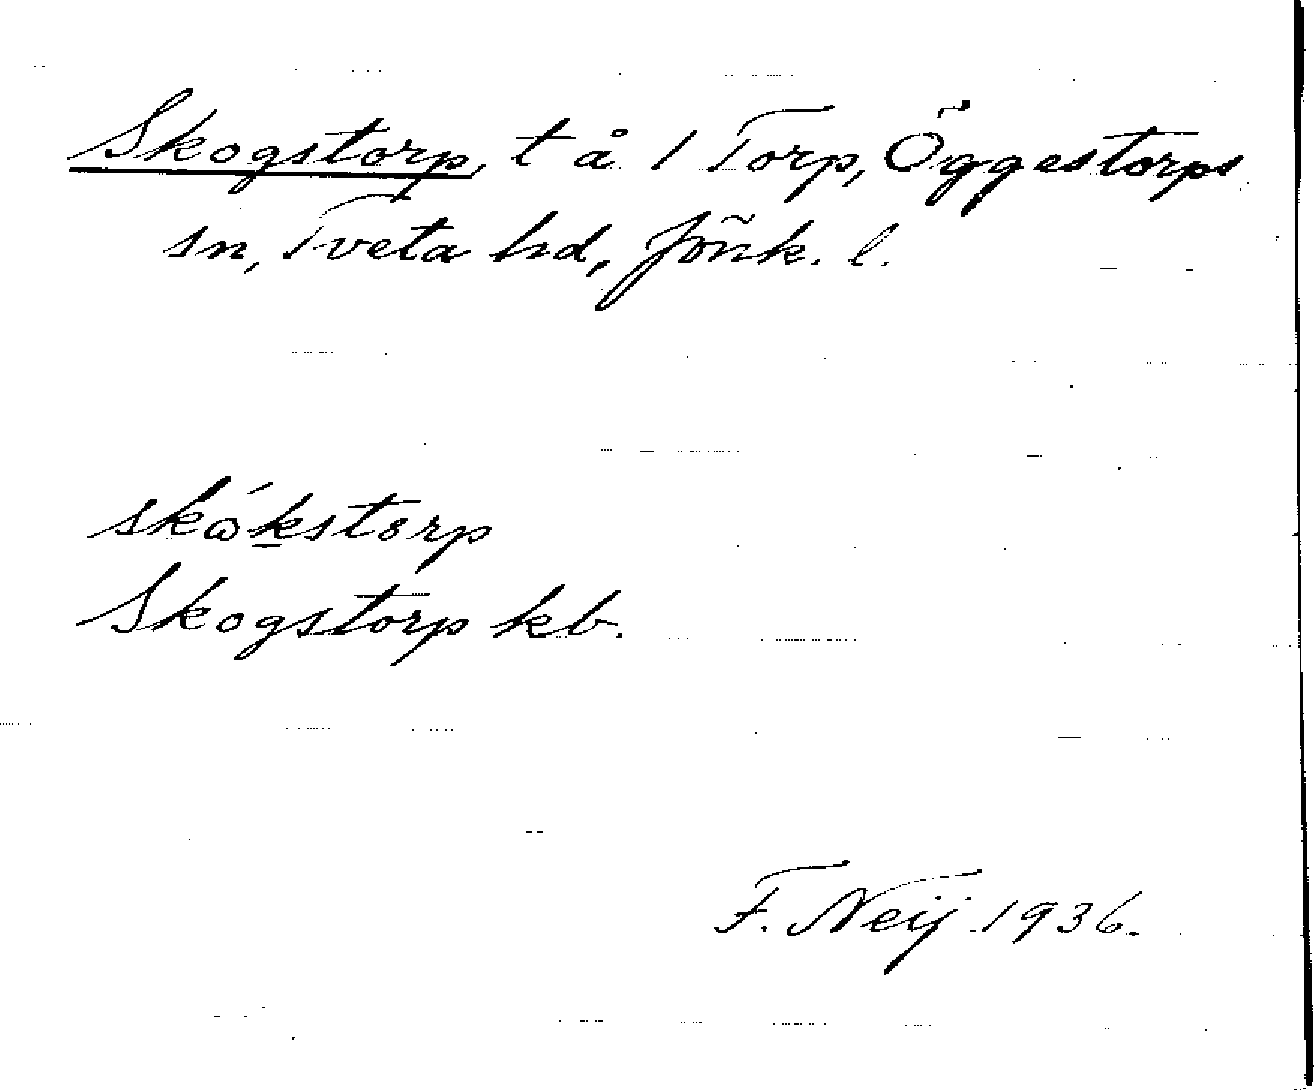 Skogstorp, t å 1 Torp, Öggestorps
sn, Tveta hd, Jönk. l.
skǻkstorp
Skogstorp kb.
F. Neij 1936.